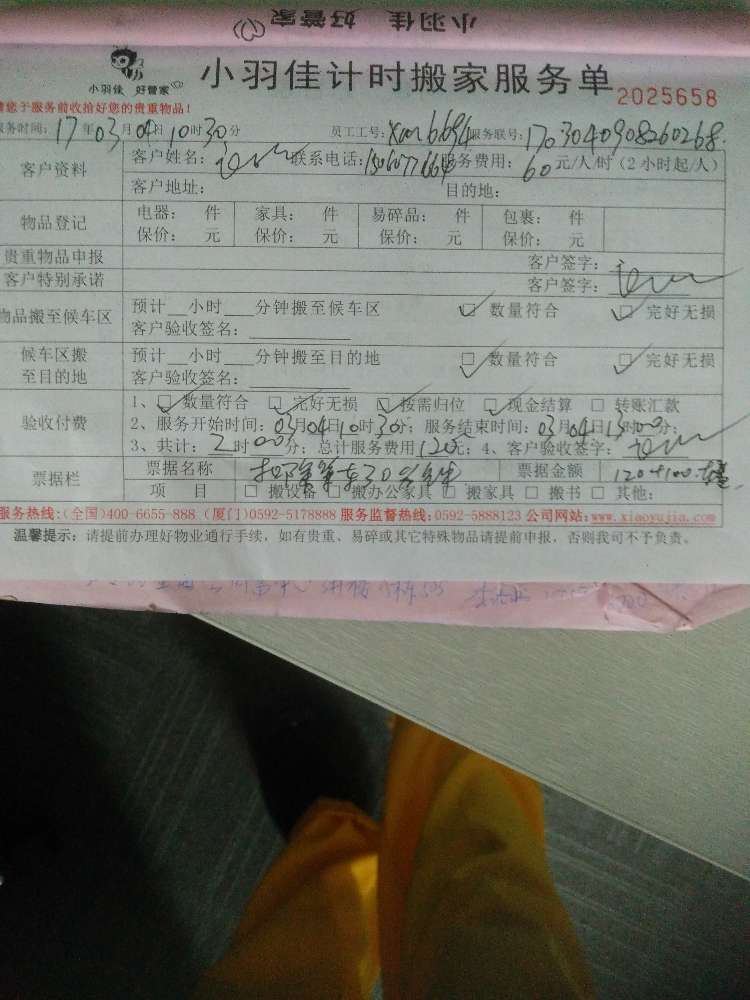 小羽佳 好管家
小羽佳 好管家
小羽佳计时搬家服务单 2025658
请您于服务前收拾好您的贵重物品!
服务时间: 17年03月04日10时30分 员工工号: 服务联号: 1703040908260268
客户资料 客户姓名: 联系电话: 服务费用: 60元/人/时 (2小时起/人)
客户地址: 目的地:
物品登记 电器: 件 家具: 件 易碎品: 件 包裹: 件
保价: 元 保价: 元 保价: 元 保价: 元
贵重物品申报 客户签字:
客户特别承诺 客户签字:
物品搬至候车区 预计__小时___分钟搬至候车区 □ 数量符合 □ 完好无损
客户验收签名:
候车区搬至目的地 预计__小时___分钟搬至目的地 □ 数量符合 □ 完好无损
客户验收签名:
验收付费 1、□ 数量符合 □ 完好无损 □ 按需归位 □ 现金结算 □ 转账汇款
2、服务开始时间: 03月04日10时30分; 服务结束时间: 03月04日13时00分;
3、共计: 2时00分; 总计服务费用120元; 4、客户验收签字:
票据栏 票据名称 票据金额 120+100
项 目 □ 搬设备 □ 搬办公家具 □ 搬家具 □ 搬书 □ 其他:
服务热线:(全国)400-6655-888 (厦门)0592-5178888 服务监督热线:0592-5888123 公司网站:www.xiaoyujia.com
温馨提示: 请提前办理好物业通行手续, 如有贵重、易碎或其它特殊物品请提前申报, 否则我司不予负责。